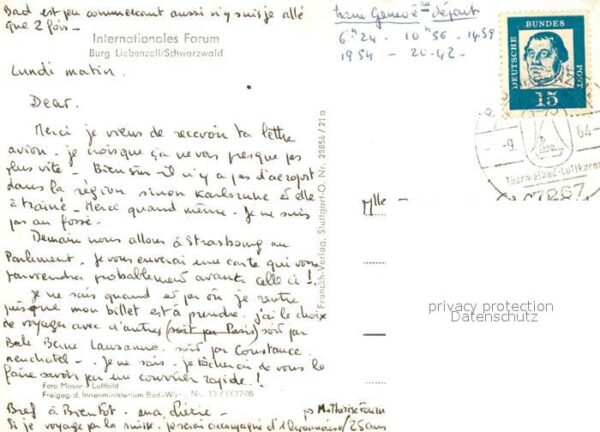 Bad est peu commerçant aussi n'y suis je allé
que 2 fois -
Internationales Forum
Burg Liebenzell/Schwarzwald
Lundi matin.
Dear.
Merci je viens de recevoir ta lettre
avion. je crois que ça ne va presque pas
plus vite - Bien sûr il n'y a pas d'aéroport
dans la région sinon Karlsruhe et elle
a trainé - Merci quand même. Je ne suis
pas au fossé.
Demain nous allons à Strasbourg au
Parlement. je vous enverai une carte qui vous
parviendra probablement avant celle ci !.
Je ne sais quand et par où je rentre
puisque mon billet est à prendre. j'ai le choix
de voyager avec d'autres (soit par Paris) soit par
Bale Berne Lausanne. soit par Constance.
neuchatel - . Je ne sais. je tâcherai de vous le
faire savoir par un courrier rapide !
Foto Moser Luftbild
Freigeg. d. Innenministerium Bad.-Württ. Nr. 13/
Bref à Bientôt.
Si je voyage par la suisse. je serai accompagné d'1 lyonnaise/25 ans
trains Genève départ
6h24 - 10h56 - 14.59
1954 - 20.42 -
DEUTSCHE BUNDES POST
15
-9. 64-
7267
Franckh-Verlag, Stuttgart-O. Nr. 29856/21a
Mlle
privacy protection
Datenschutz